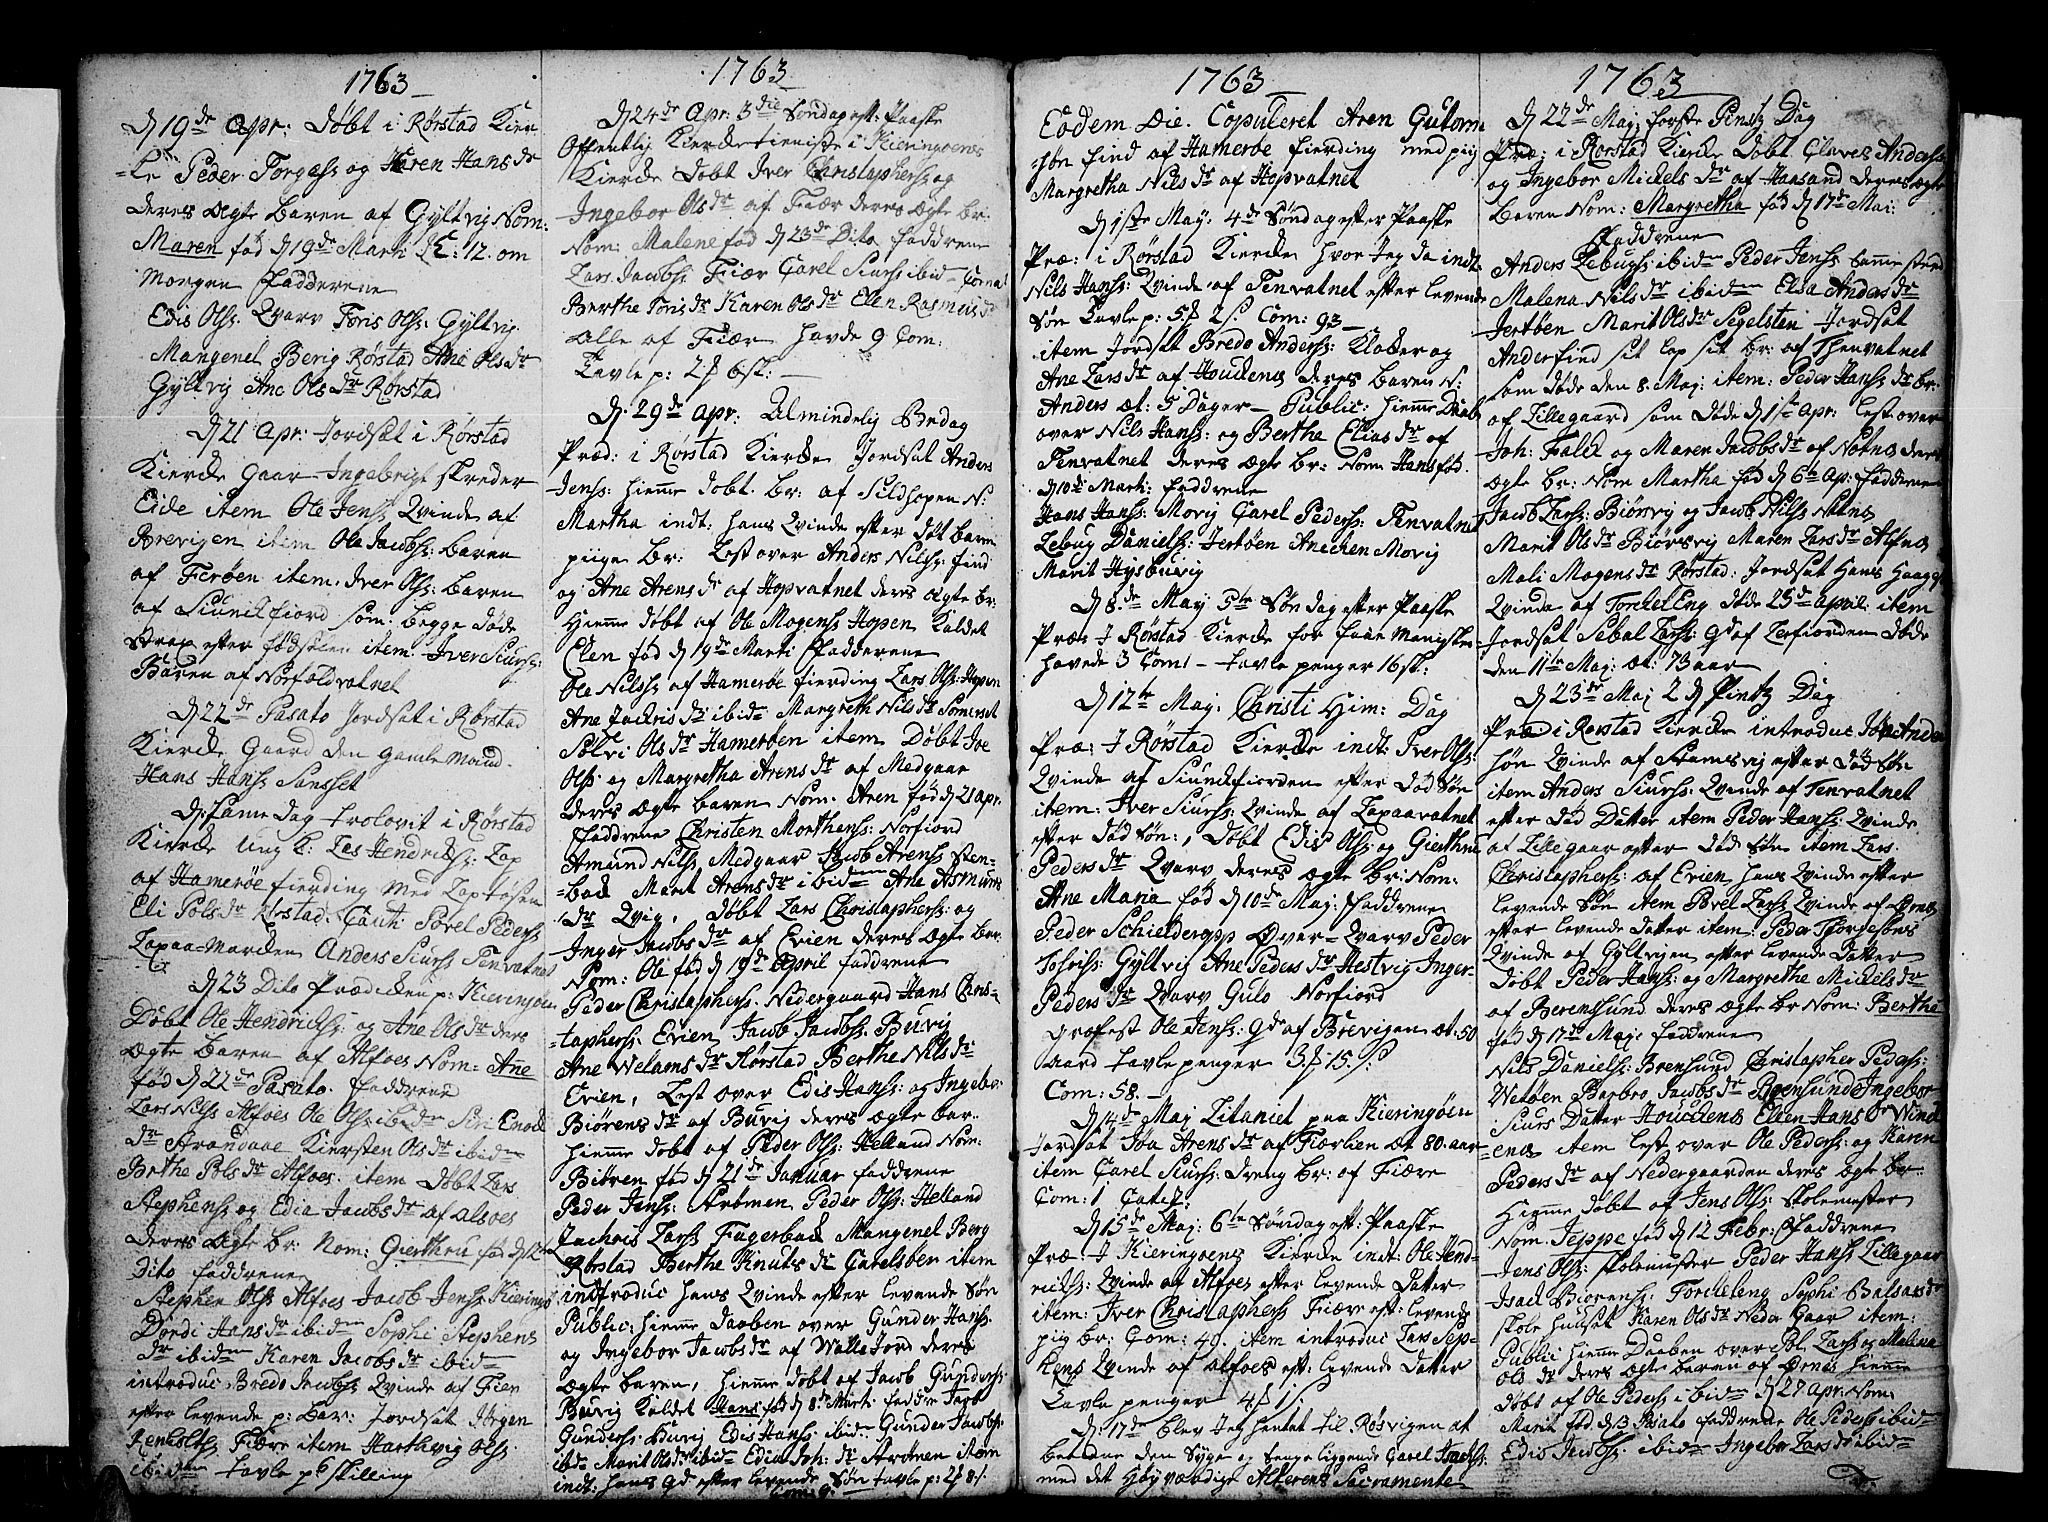 1763
D 19de Apr: Døbt i Rørstad Kier-
-ke Peder Torgess: og Karen Hans dr
deres Ægte Baren af Gyltvig Nom:
Maren fød D 19de Marti Kl: 12. om
Morgen Fadderene
Edis Olss: Qvarv Joris Olss: Gyltvig
Mangenel Berig Rørstad Ane Olsdr
Gyltvig Ane Ols dr Rørstad
D 21 Apr: Jordsat i Rørstad
Kierke Gaar Ingebrigt Skreder
Eide item Ole Jenss: Qvinde af
Brevigen item Ole Jacobss: Baren
af Ferøen item: Iver Olss: Baren
af Siunckfiord som begge døde
Strax efter fødselen item: Iver Siurss:
Baren af Norfoldvatnet
D 22de Pasato Jordsat i Rørstad
Kierke Gaard den gamle Mand
Hans Hanss: Sansset
D: samme Dag trolovit i Rørstad
Kierke Ung k: Les Hendrichss: Lap
af Hamerøe fierding med Lap tøsen
Eli Pols dr Rørstad. Cauti: Povel Pederss:
Lapaa-Marcken Anders Siurss: Tenvatnet
D 23 Dito Prædicken p: Kieringøen
Døbt Ole Hendrichss: og Ane Ols dr deres
Ægte Baren af Alfoes Nom: Ane
fød D 22de Pasato. Faddrene
Lars Nilss Alfoes Ole Olss: ibidm Siri Enock
dr Strandaae Kiersten Ols dr ibidm
Brthe Pols dr Alfoes. item Døbt Lars
Stephenss: og Edia Jacobs dr af Alfoes
deres Ægte br: Nom: Gierthru fød D 12te
Dito Faddrene
Stephen Olss: Alfoes Jacob Jenss: Kieringø
Dordi Hans dr ibidm Sophi Stephens
dr ibidm Karen Jacobs dr ibidm
introduc: Bredo Jacobss: Qvinde af Fier
efter levende p: Bar: Jordsat Jørgen
Renholtss: Fiære item Harthvig Olss:
ibidm Tavle p 6 skilling
1763
D 24de Apr: 3die Søndag eft: Paaske
Offentlig Kierketieniste i Kieringøens
Kierke Døbt Iver Christaphersss: og
Ingebor Olsdr af Fiær deres Ægte br:
Nom: Malene fød D 23de Dito Faddrene
Lars Jacobs: Fiær Carel Siurss: ibidm
Berthe Joris dr Karen Ols dr Elen Rasmus dr
Alle af Fiær havde 9 Com:
Tavle p: 2 ƒ 6 st: —
D. 29de Apr: Almindelig Bededag
Præd: i Rørstad Kierke Jordsat Anders
Jenss: Hieme døbt br: af Sildhopen N:
Martha indt: hans Qvinde efter døt Baren
piige Br: Lest over Anders Nilss: find
og Ane Arens dr af Hopvatnet deres Ægte br:
Hieme døbt af Ole Mogens Hopen Kaldet
Elen fød D 19de Marti Fadderene
Ole Nilss: af Hamerøe fierding Lars Olss: Hopen
Ane Jackris dr ibidm Margreth Nils dr Somerset
Solvi Ols dr Hamerøen item Døbt Joe
Olss: og Margretha Arens dr af Medgaar
deres Ægte Baren Nom. Aren fød D 21 Apr.
Faddrene Christen Morthenss: Norfiord
Amund Nilss Medgaar Jacob Arenss Sten-
-bac Marit Arens dr ibidm Ane Asmunds
dr Qvig, Døbt Lars Christaphersss: og
Inger Jacobs dr af Evien deres Ægte Br
Nom: Ole fød D 19de April Faddrene
Peder Christaphersss: Nedergaard Hans Chris-
-taphersss: Evien Jacob Jacobss: Buvig
Ane Welams dr Rørstad Berthe Nils dr
Evien, Lest over Edis Hanss: og Ingebor:
Biørens dr af Buvig deres Ægte bar.
Hieme Døbt af Peder Olss: Helland Nom:
Biøren fød D 21de Januar Faddrene
Peder Jenss: Strømen Peder Olss: Helland
Zachris Larss Fagerbac Mangenel Berg
Rørstad Berthe Knuts dr Carelsben item
introduc hans Qvinde efter levende Søn
Public: hieme Daaben over Gunder Hanss:
og Ingebor Jacobs dr af Walle Jord deres
Ægte Baren, hieme døbt af Jacob Gunderss:
Buvig Kaldet Hans fød D 8de Mart: Faddre Jacob
Gunderss: Buvig Edis Hanss: ibidm Gunder Jacobss:
ibidm Marit Olsdr ibidm Edia Joh: dr Strømen item
indt: hans qd efter levende Søn Tavle p: 2 ƒ 8 /.
Com: 9.
1763
Eodem Die. Copuleret Aren Gutorm
søn find af Hamerøe fierding med piig
Margretha Nils dr af Hopvatnet
D 1ste May. 4de Søndag efter Paaske
Præ: i Rørstad Kierke hvor Jeg da indt:
Nils Hanss: Qvinde af Tenvatnet efter levende
Søn Tavle p: 5 ƒ 2 /. Com: 93
item Jordsat Bredo Anderss: Klocker og
Ane Lars dr af Houckenes deres Baren N:
Anders æt: 5 Dager — Public: hieme Daab
over Nils Hanss: og Berthe Elias dr af
Tenvatnet deres Ægte br: Nom Hans fød.
D 10de Mart: Faddrene
Hans Hanss: Movig Carel Pederss: Tenvatnet
Zebug Danielss: Jertøen Anechen Movig
Marit Hysbuvig
D 8.de May 5te Søndag efter Paaske
Præ: I Rørstad Kierke for faae Menisker
havde 3 Com: — Tavle penger 16 st:
D 12te May: Christi Him: Dag
Præ: I Rørstad Kierke indt: Iver Olss:
Qvinde af Siunckfiorden efter Død Søn
item: Iver Siurss: Qvinde af Lapaavatnet
efter død Søn:, Døbt Edis Olss: og Gierthru
Peders dr Qvarv deres Ægte br: Nom:
Ane Maria fød D 10de Maj: Faddrene
Peder Schielderopp Øver-Qvarv Peder
Johriss: Gyltvig Ane Peders dr Hestvig Inger-
Peders dr Qvarv Gulo Norfiord
Græfest Ole Jenss: qd af Brevigen æt: 50
aard Tavle penger 3 ƒ 15 /.
Com: 58.
D 14de Maj Litaniet paa Kieringøen
Jordsat Soa Arens dr af Fiærlien æt 80. aar
item Carel Siurss: dreng br: af Fiære
Com: 1
D 15de Maj: 6te Søndag eft: Paaske
Præ. I Kieringøens Kierke indt: Ole Hend-
richss: Qvinde af Alfoes efter levende Datter
item: Iver Christapherss Fiære eft: levende
pig br: Com: 49. item introduc Lars Step-
hens Qvinde af Alfoes eft: levende Datter
Tavle penger 4 ƒ 1 /.
D: 17de blev Jeg hentet til Røsvigen at
betiene den Syge og Senge liggende Carel Isachss:
med det Høyværdige Alterens Sacramente
1763
D 22de Maj: første Pinsz Dag
Præ: i Rørstad Kierke Døbt: Claves Anderss:
og Ingebor Mickels dr af Haasand deres Ægte
Baren Nom: Margretha fød D 17de Mai:
Faddrene
Anders Zebugss: ibidm Peder Jenss: samme sted
Malena Nils dr ibidm Elsa Anders dr
Jertøen Marit Ols dr Segelsten: Jordsat
Anderfind sit Lap sit br: af Thenvatnet
som døde den 8. Maj: item: Peder Hanss: br:
af Lillegaard som døde D 1ste Apr: Lest over
Joh: Falck og Maren Jacobs dr af Nøtnes deres
Ægte br: Nom Martha fød D 6te Ap. Faddrene
Jacob Larss: Biørsvig og Jacob Nilss Nøtnes
Marit Ols dr Biørsvig Maren Lars dr Alfnes
Mali Mogens dr Rørstad: Jordsat Hans Haag
Qvinde af Torckel Eng døde 25de April: item
Jordsat Sebal Larss: qd af Lerfiorden døde
den 11te Maj: æt: 73 aar
D 23de Maj 2 D Pintz Dag
Præ: i Rørstad Kierke introduc Joen Ander
søn Qvinde af Stamsvig efter død Søn
item Anders Siurss: Qvinde af Tenvatnet
efter død Datter item Peder Hanss: Qvinde
af Lillegaar efter død Søn item Lars
Christaphersss: af Evien hans Qvinde efter
levende Søn item Povel Larss Qvinde af Ørnes
efter levende Datter item: Peder Thorgesons
Qvinde af Gyltvigen efter levende Datter
Døbt Peder Hanss: og Margrethe Mickels dr
af Berensund deres Ægte br Nom: Berthe
fød D 17de Maj: Faddrene
Nils Danielss: Brensund Christapher Pederss:
Wetøen Barbro Jacobs dr Brensund Ingebor
Siurs Datter Houckenes Ellen Hans dr Wind
-enes item Lest over Ole Pederss: og Karen
Peders dr af Nedergaarden deres Ægte br
Hieme døbt af Jens Olss: Skolemester
Nom: Jeppe fød D 12 Febr: Faddrene
Jens Olss: Skolemester Peder Hanss Lillegaar
Isac Biørenss: Torckeleng Sophi Balsars dr
Skole Huuset Karen Ols dr Neder Gaar item:
Public hieme Daaben over Pol Larss og Malena
Ols dr deres Ægte Baren af Ørnes hieme
døbt af Ole Pederss: ibidm D 27 Apr. Nom:
Marit fød D 13 Pasato Faddrene Ole Pederss ibidm
Edis Jacobss: ibidm Ingebor Lars dr ibidm